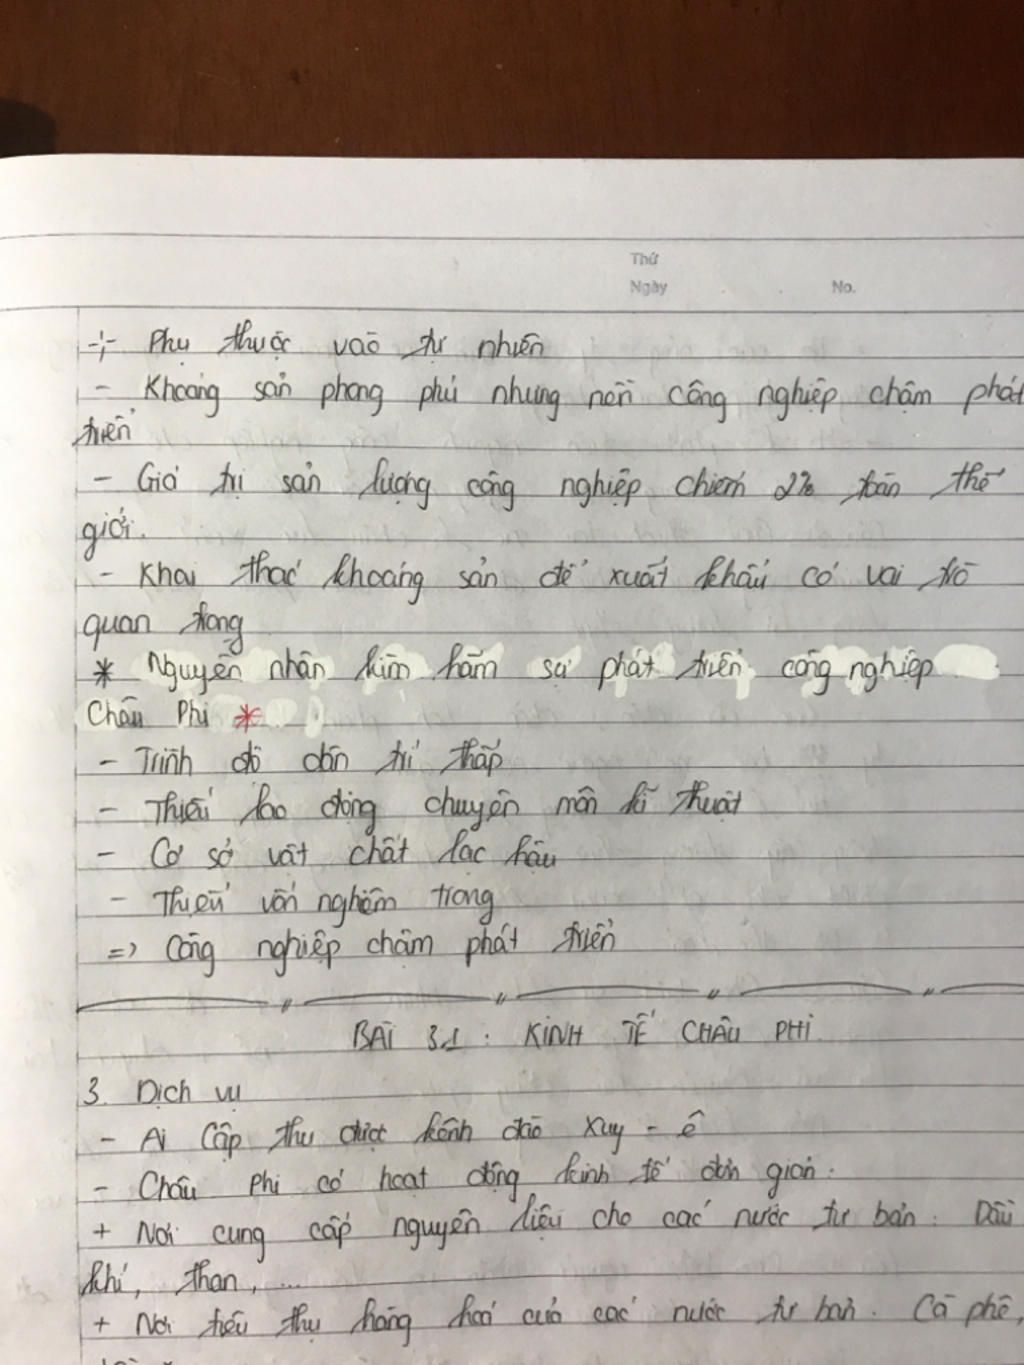 Thứ
Ngày No.
+ Phụ thuộc vào tự nhiên
- Khoáng sản phong phú nhưng nền công nghiệp chậm phát
triển
- Giá trị sản lượng công nghiệp chiếm 2% toàn thế
giới.
- Khai thác khoáng sản để xuất khẩu có vai trò
quan trọng
* Nguyên nhân kìm hãm sự phát triển công nghiệp
Châu Phi *
- Trình độ dân trí thấp
- Thiếu lao động chuyên môn kĩ thuật
- Cơ sở vật chất lạc hậu
- Thiếu vốn nghiêm trọng
=> Công nghiệp chậm phát triển
BÀI 31: KINH TẾ CHÂU PHI
3. Dịch vụ
- Ai Cập thu được kênh đào Xuy - ê
- Châu Phi có hoạt động kinh tế đơn giản.
+ Nơi cung cấp nguyên liệu cho các nước tư bản: Dầu
khí, than, ...
+ Nơi tiêu thụ hàng hoá của các nước tư bản. Cà phê,